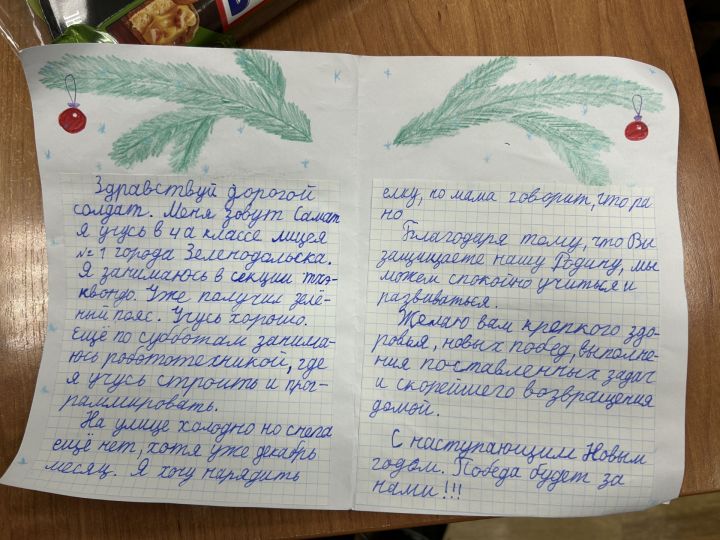 Здравствуй дорогой
солдат. Меня зовут Самат
я учусь в 4 а классе лицея
№ 1 города Зеленодольска.
Я занимаюсь в секции тхэ-
квондо. Уже получил зелё-
ный пояс. Учусь хорошо.
Ещё по субботам занима-
юсь робототехникой, где
я учусь строить и прог-
раммировать.
На улице холодно но снега
ещё нет, хотя уже декабрь
месяц. Я хочу нарядить
елку, но мама говорит, что ра
но
Благодаря тому, что Вы
защищаете нашу Родину, мы
можем спокойно учиться и
развиваться.
Желаю вам крепкого здо-
ровья, новых побед, выполне-
ния поставленных задач
и скорейшего возвращения
домой.
С наступающим Новым
годом. Победа будет за
нами!!!